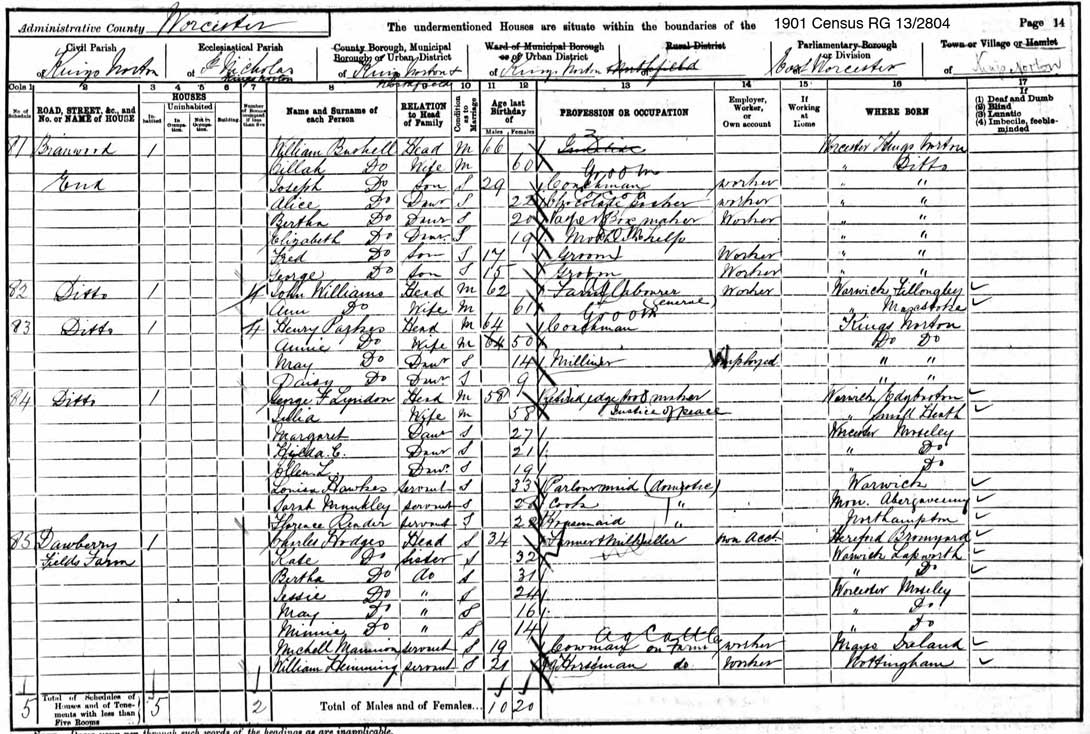 Administrative County Worcester The undermentioned Houses are situate within the boundaries of the 1901 Census RG 13/2804 Page 14
Civil Parish Ecclesiastical Parish County Borough, Municipal Borough or Urban District Ward of Municipal Borough or of Urban District Rural District Parliamentary Borough or Division Town or Village or Hamlet
of Kings Norton of St Nicholas Kings Norton of Kings Norton & Northfield of Kings Norton Northfield East Worcester of Kings Norton
Cols 1 2 3 4 5 6 7 8 9 10 11 12 13 14 15 16 17
No. of Schedule ROAD, STREET, &c., and No. or NAME of HOUSE HOUSES Inhabited Uninhabited In Occupation. Not in Occupation. Building Number of Rooms occupied if less than five Name and Surname of each Person RELATION to Head of Family Condition as to Marriage Age last Birthday of Males Females PROFESSION OR OCCUPATION Employer, Worker, or Own account If Working at Home WHERE BORN If (1) Deaf and Dumb (2) Blind (3) Lunatic (4) Imbecile, feeble-minded
81 1 William Bushell Head M 66 Worcester Kings Norton
Cillah Do Wife M 60 " Ditto
End Joseph Do Son S 29 Coachman Groom worker " "
Alice Do Daur S 22 Chocolate Packer worker " "
Bertha Do Daur S 20 Paper Box maker Worker " "
Elizabeth Do Daur S 19 " "
Fred Do Son S 17 Groom Worker " "
George Do Son S 15 Groom Worker " "
82 Ditto 1 4 John Williams Head M 62 Farm Labourer Worker Warwick Fillongley
Ann Do Wife M 61 (General) "
83 Ditto 1 4 Henry Parkes Head M 64 Coachman Groom Kings Norton
Annie Do Wife M 50 Do Do
May Do Daur S 14 Milliner Employed " "
Daisy Do Daur S 9 " "
84 Ditto 1 George F Lyndon Head M 58 Retired edge tool maker Warwick Edgbaston
Wife M 58 Justice of peace " Small Heath
Margaret Daur S 27 Worcester Moseley
Hilda C. Daur S 21 " Do
Ellen L. Daur S 19 " Do
Louisa Hawkes servant S 33 Parlourmaid (domestic) Warwick
Sarah servant S Cook " Mon. Abergavenny
Florence servant S Housemaid " Northampton
85 Dawberry 1 Charles Hodges Head S 34 Farmer & Milkseller own Acct Hereford Bromyard
Fields Farm Kate Do sister S 32 Warwick Lapworth
Bertha Do do S 31 " Do
Jessie Do " S 24 Worcester Moseley
May Do " S 16 " Do
Minnie Do " S 14 " Do
Michell servant S 19 Cowman on farm Ag Cattle worker Mayo Ireland
William Hemming servant S 21 Horseman do Worker Nottingham
5 Total of Schedules of Houses and of Tenements with less than Five Rooms 5 2 Total of Males and of Females... 10 20